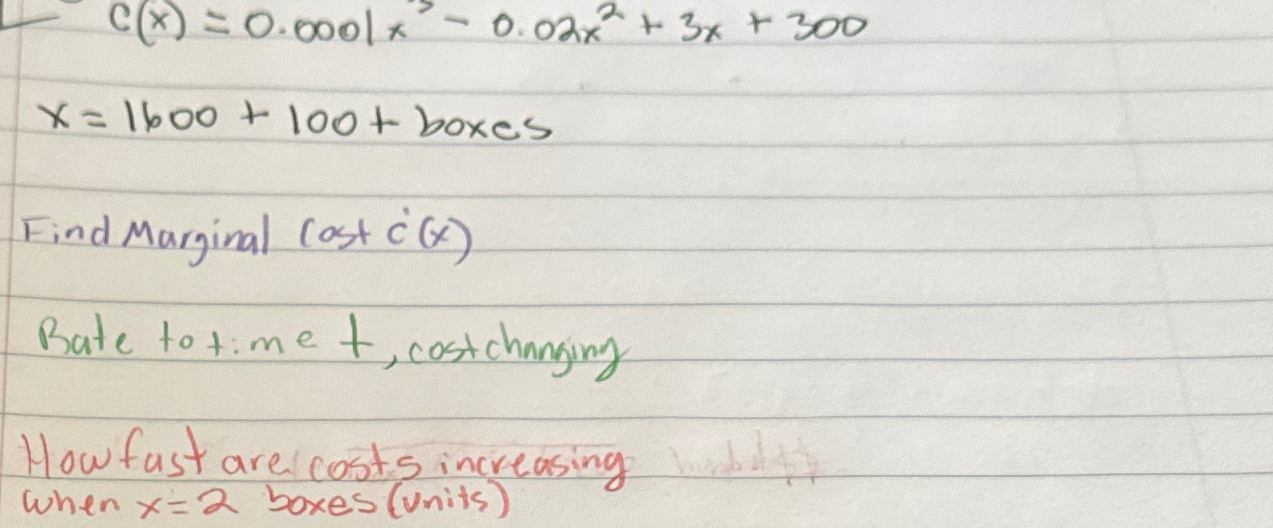 C(x) = 0.0001x³ - 0.02x² + 3x + 300
x = 1600 + 100t boxes
Find Marginal Cost C'(x)
Rate to time t, cost changing
How fast are costs increasing
when x = 2 boxes (units)